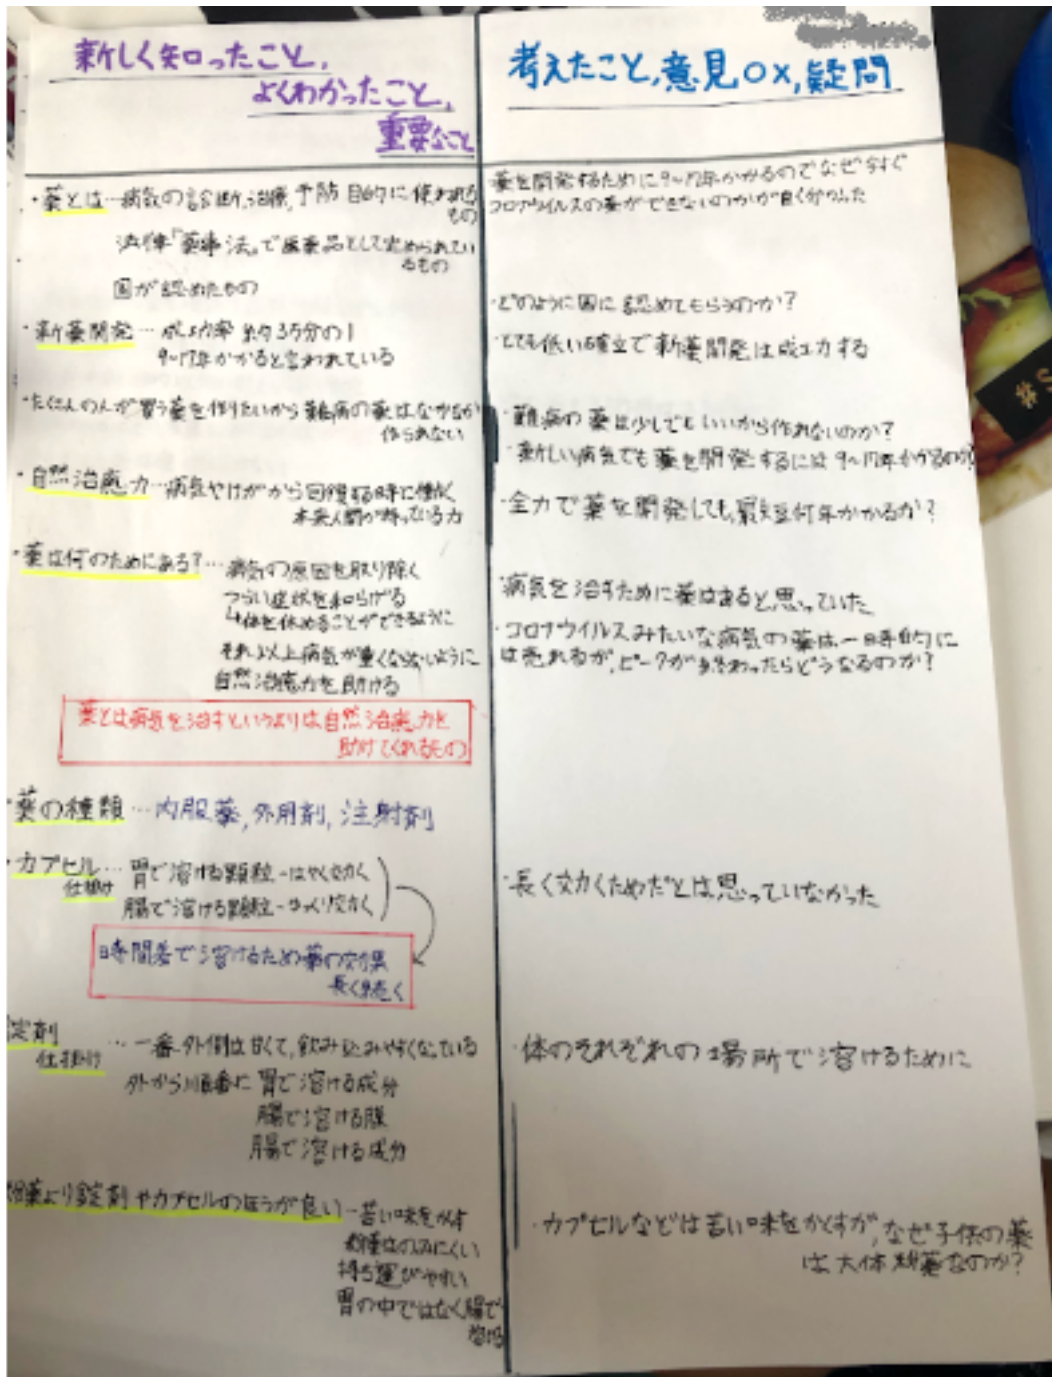 新しく知ったこと,
よくわかったこと,
重要なこと
・薬とは…病気の診断,治療,予防 目的に使われる
もの
法律「薬事法」で医薬品として定められてい
るもの
国が認めたもの
・新薬開発… 成功率 約35分の1
9~17年かかると言われている
・たくさんの人が買う薬を作りたいから難病の薬はなかなか
作られない
・自然治癒力…病気やけがから回復する時に働く
本来人間が持っている力
・薬は何のためにある?… 病気の原因を取り除く
つらい症状を和らげる
体を休めることができるように
それ以上病気が重くならないように
自然治癒力を助ける
薬とは病気を治すというよりは自然治癒力を
助けてくれるもの
・薬の種類…内服薬,外用剤,注射剤
・カプセル…胃で溶ける顆粒-はやく効く
仕掛け
腸で溶ける顆粒-ゆっくり効く
時間差で溶けるため薬の効果
長く続く
錠剤
仕掛け
…一番外側は甘くて,飲み込みやすくなっている
外から順番に 胃で溶ける成分
腸で溶ける膜
腸で溶ける成分
粉薬より錠剤やカプセルのほうが良い-苦い味をかくす
粉薬はのみにくい
持ち運びやすい
胃の中ではなく腸で
溶ける
考えたこと,意見○×,疑問
薬を開発するために9~17年かかるのでなぜ今すぐ
コロナウイルスの薬ができないのかが良く分かった
・どのように国に認めてもらうのか?
・とても低い確立で新薬開発は成功する
・難病の薬は少しでもいいから作れないのか?
・新しい病気でも薬を開発するには9~17年かかるのか?
・全力で薬を開発しても,最短何年かかるか?
・病気を治すために薬はあると思っていた
・コロナウイルスみたいな病気の薬は一時的に
は売れるが,ピークが終わったらどうなるのか?
・長く効くためだとは思っていなかった
・体のそれぞれの場所で溶けるために
・カプセルなどは苦い味をかくすが,なぜ子供の薬
は大体粉薬なのか?